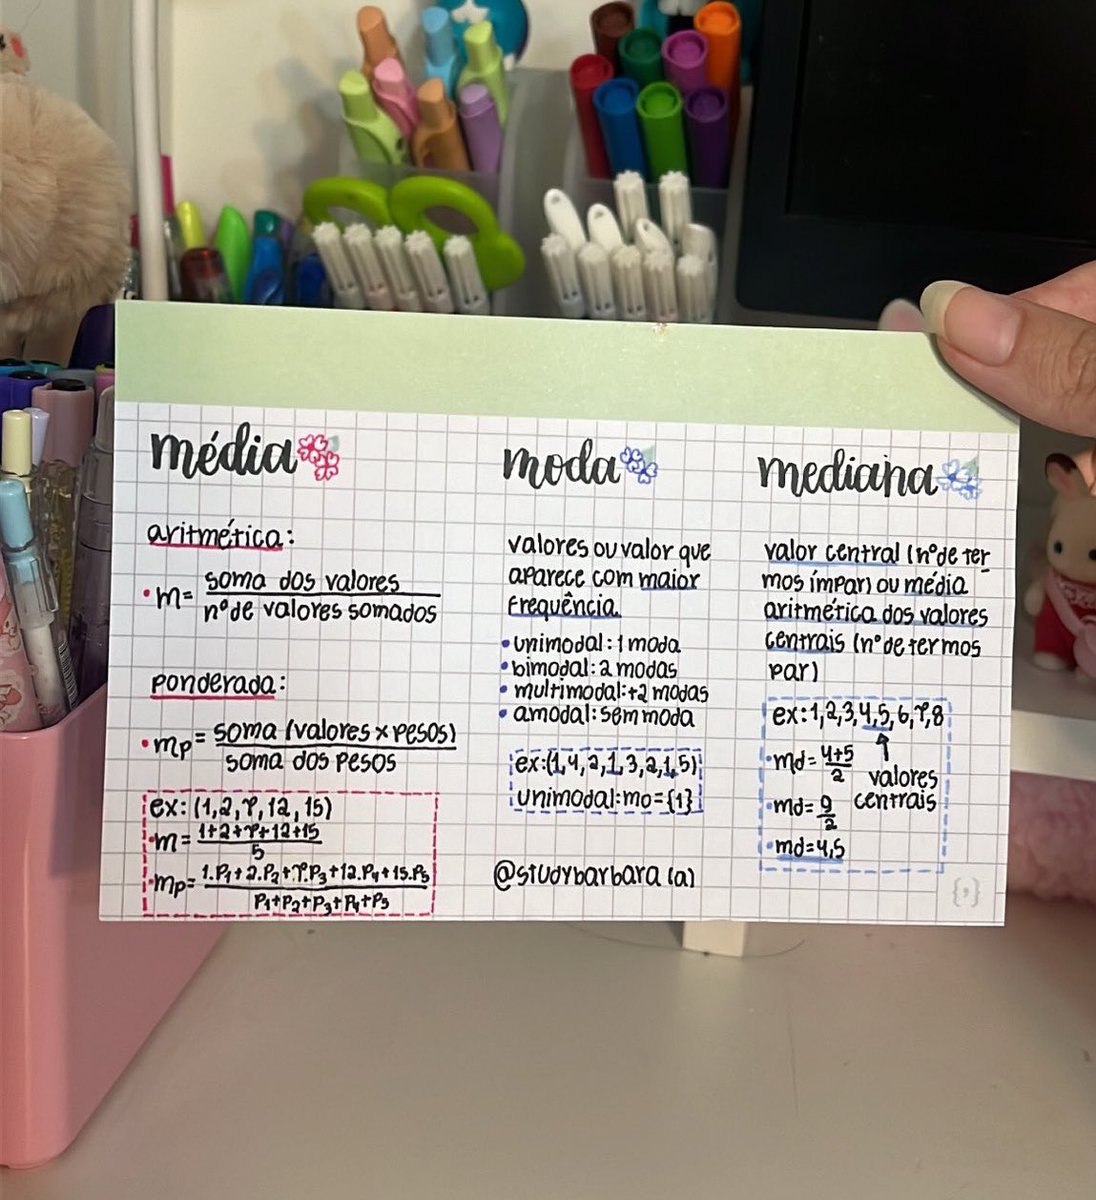 média
aritmética:
•m= soma dos valores
nº de valores somados
ponderada:
•mp= soma (valores x pesos)
soma dos pesos
ex: (1,2,7,12,15)
•m= 1+2+7+12+15
5
•mp= 1.P1+2.P2+7.P3+12.P4+15.P5
P1+P2+P3+P4+P5
moda
valores ou valor que
aparece com maior
frequência
•unimodal: 1 moda
•bimodal: 2 modas
•multimodal: +2 modas
•amodal: sem moda
ex: (1,4,2,1,3,2,1,5)
unimodal: mo={1}
@studybarbara(a)
mediana
valor central (nº de ter
mos ímpar) ou média
aritmética dos valores
centrais (nº de termos
par)
ex: 1,2,3,4,5,6,7,8
•md= 4+5
2
valores
centrais
•md= 9
2
•md=4,5
{,}